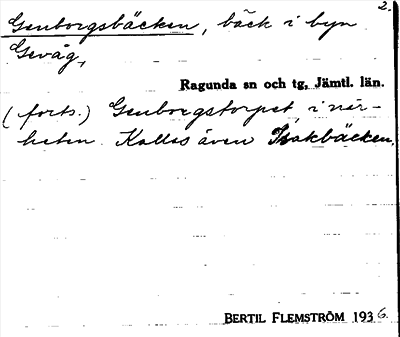 2.
Genborgsbäcken, bäck i byn
Gevåg,
Ragunda sn och tg, Jämtl. län.
(forts.) Genborgstorpet i när-
heten. Kallas även Isakbäcken.
BERTIL FLEMSTRÖM 1936.